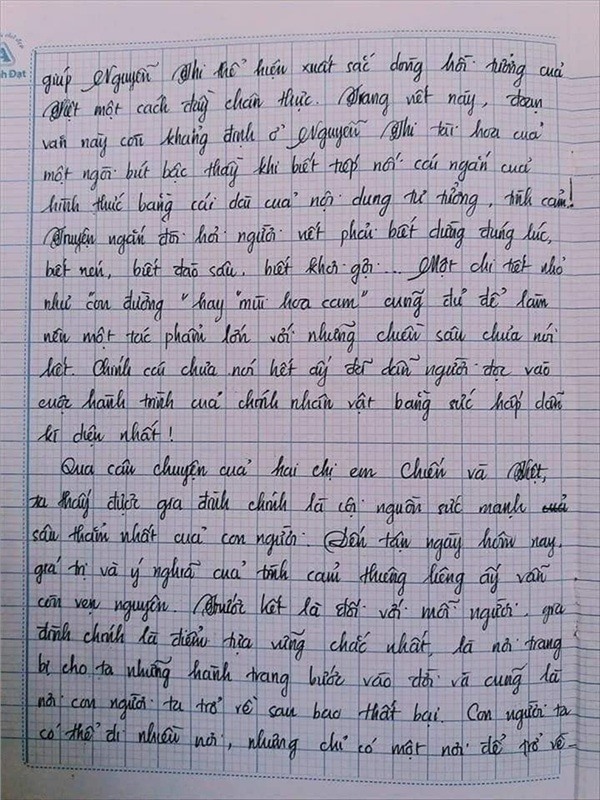 h Đạt
giúp Nguyễn Thi thể hiện xuất sắc dòng hồi tưởng của
Việt một cách đầy chân thực. Trang viết này, đoạn
văn này còn khẳng định ở Nguyễn Thi tài hoa của
một ngòi bút bậc thầy khi biết tiếp nối cái ngắn của
hình thức bằng cái dài của nội dung tư tưởng, tình cảm!
Truyện ngắn đòi hỏi người viết phải biết dừng đúng lúc,
biết nén, biết đào sâu, biết khơi gợi... Một chi tiết nhỏ
như "con đường" hay "mùi hoa cam" cũng đủ để làm
nên một tác phẩm lớn với những chiều sâu chưa nói
hết. Chính cái chưa nói hết ấy để dẫn người đọc vào
cuộc hành trình của chính nhân vật bằng sức hấp dẫn
kì diệu nhất!
Qua câu chuyện của hai chị em Chiến và Việt,
ta thấy được gia đình chính là cội nguồn sức mạnh
sâu thẳm nhất của con người. Đến tận ngày hôm nay,
giá trị và ý nghĩa của tình cảm thiêng liêng ấy vẫn
còn vẹn nguyên. Trước hết là đối với mỗi người, gia
đình chính là điểm tựa vững chắc nhất, là nơi trang
bị cho ta những hành trang bước vào đời và cũng là
nơi con người ta trở về sau bao thất bại. Con người ta
có thể đi nhiều nơi, nhưng chỉ có một nơi để trở về -